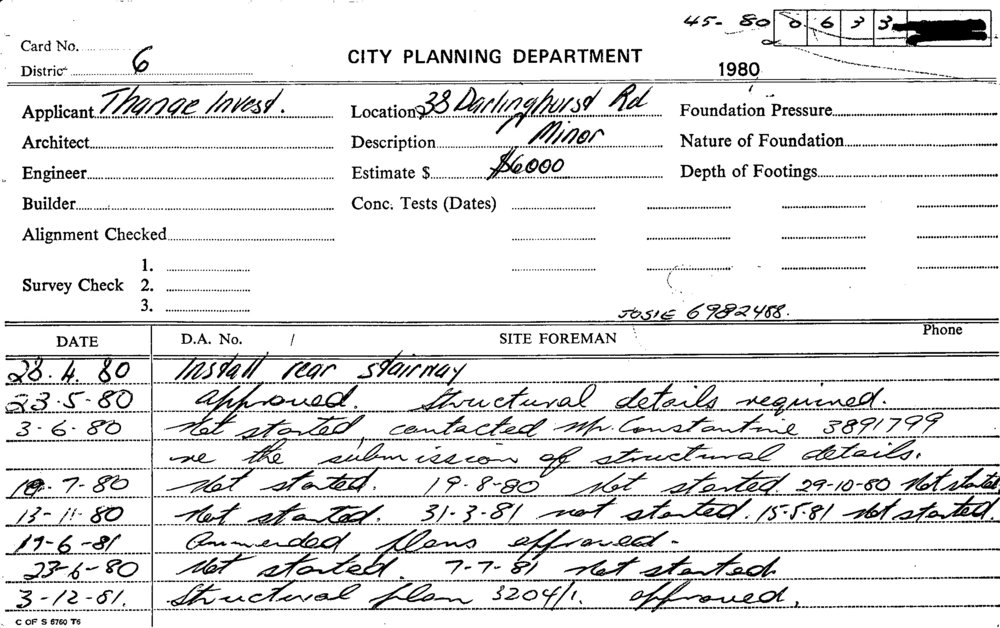 45-80 0633
Card No.
CITY PLANNING DEPARTMENT
District 6
1980
Applicant Thanae Invest. Location 38 Darlinghurst Rd Foundation Pressure
Architect Description Minor Nature of Foundation
Engineer Estimate $ $6000 Depth of Footings
Builder Conc. Tests (Dates)
Alignment Checked
1.
Survey Check 2.
3.
JOSIE 6982488.
DATE D.A. No. / SITE FOREMAN Phone
28.4.80 Install rear stairway
23.5-80 approved. Structural details required.
3-6-80 Not started, contacted Mr. Constantine 3891799
re the submission of structural details.
10-7-80 Not started. 19-8-80 Not started. 29-10-80 Not started
13-11-80 Not started. 31-3-81 not started. 15-5-81 Not started.
19-6-81 Ammended plans approved-
23-6-80 Not started. 7-7-81 Not started.
3-12-81. Structural plan 3204/1. approved.
C OF S 6760 T6